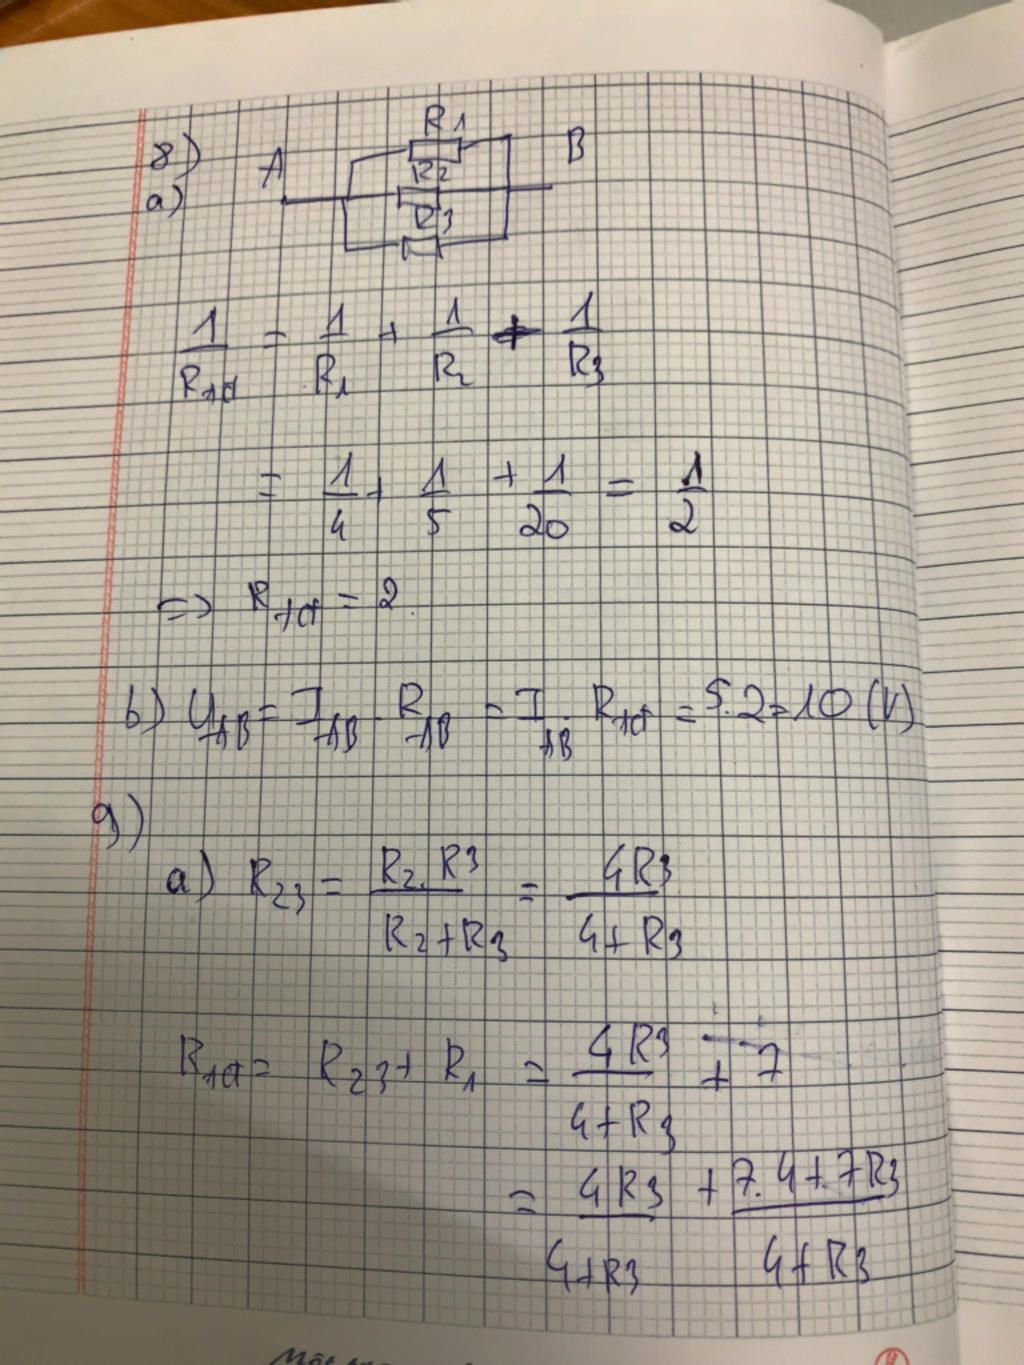 8)
a)
A R1 B
R2
R3
1/Rtđ = 1/R1 + 1/R2 + 1/R3
= 1/4 + 1/5 + 1/20 = 1/2
=> Rtđ = 2.
b) UAB = IAB . RAB = IAB . Rtđ = 5.2 = 10 (V)
9)
a) R23 = R2.R3/R2+R3 = 4R3/4+R3
Rtđ = R23 + R1 = 4R3/4+R3 + 7
= 4R3/4+R3 + 7.4+7R3/4+R3